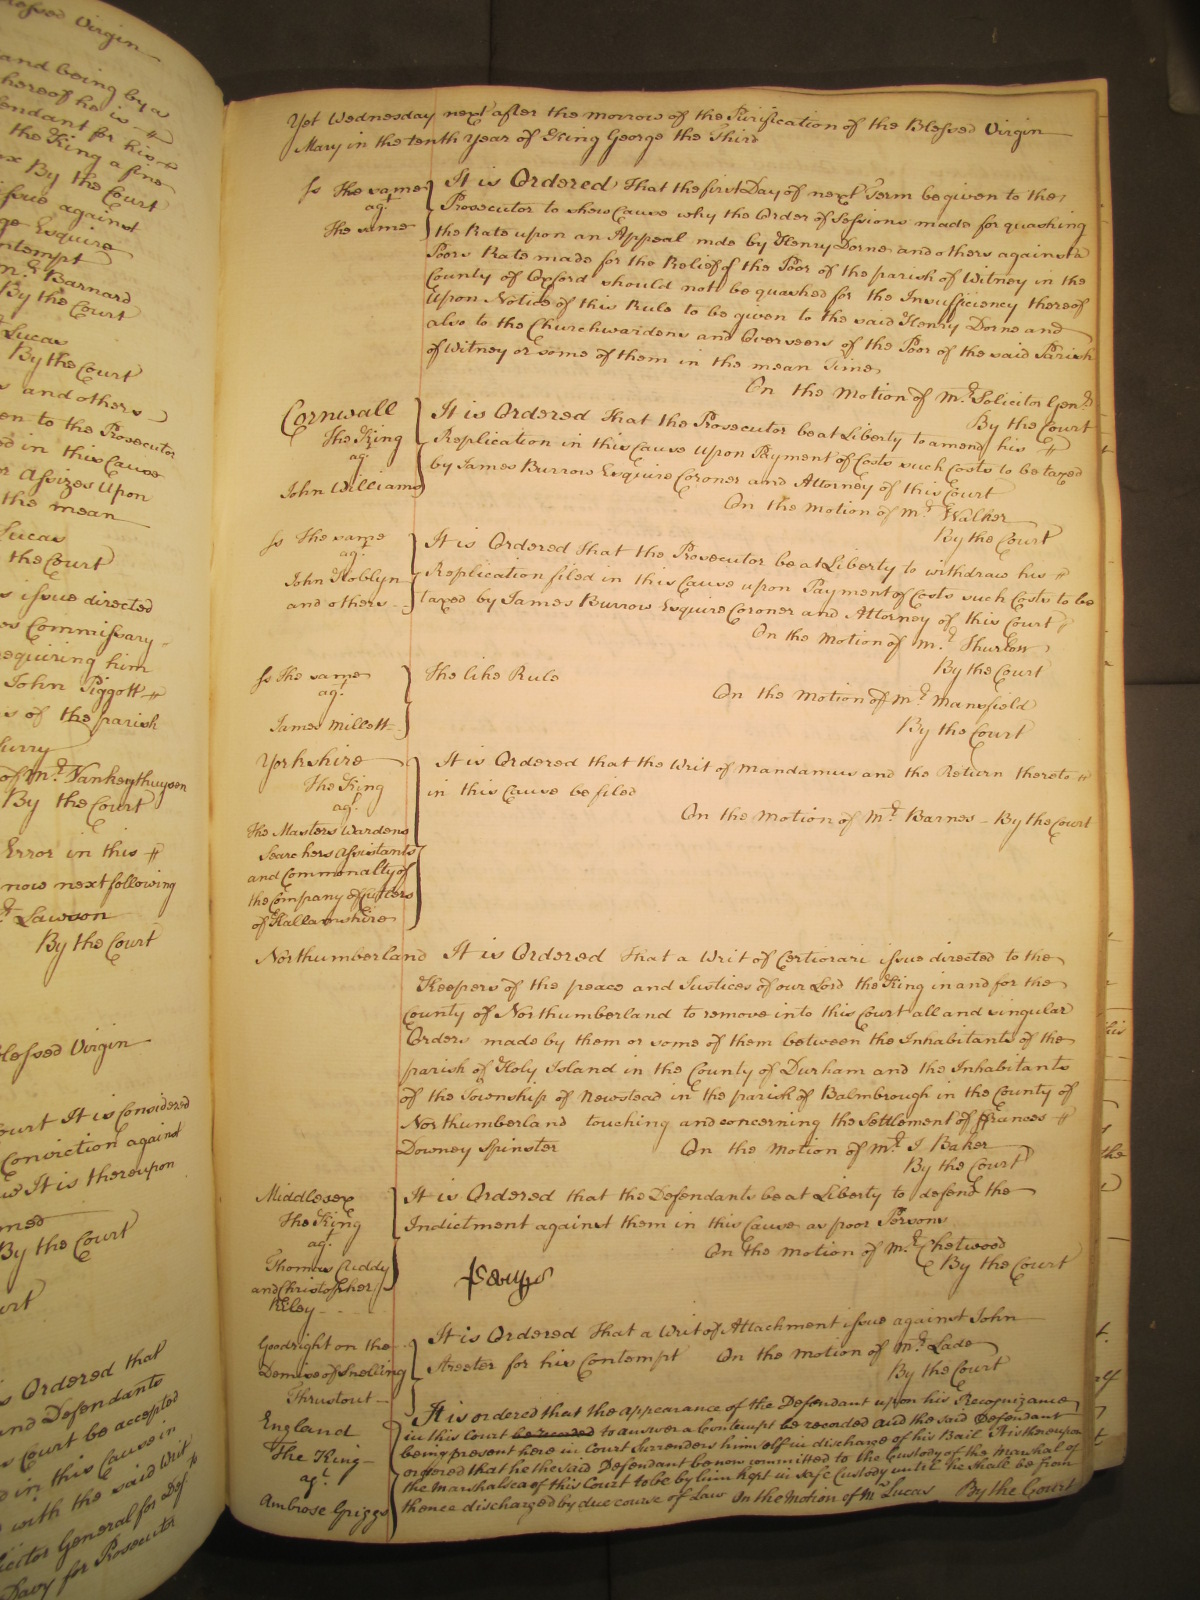 Blessed Virgin
and being by a
hereof he is
endant for his
the King a fine
By the Court
issue against
ge Esquire
ontempt
Barnard
By the Court
Lucas
By the Court
and others
en to the Prosecutor
ed in this Cause
or Assizes Upon
the mean
Lucas
the Court
issue directed
Commissary
equiring him
John Piggott
is of the parish
Surry
of Mr. Vankeythuysen
By the Court
Error in this
now next following
Lawson
By the Court
Blessed Virgin
ourt It is Considered
Conviction against
It is thereupon
By the Court
is Ordered that
and Defendants
Court be accepted
d in this Cause in
with the said Writ
licitor General for Def
Davy for Prosecutor
Yet Wednesday next after the morrow of the Purification of the Blessed Virgin
Mary in the tenth Year of King George the Third
Ss The same
agt.
The same
It is Ordered That the first Day of next Term be given to the
Prosecutor to shew Cause why the Order of Sessions made for quashing
the Rate upon an Appeal mde by Henry Dorne and others against a
Poors Rate made for the Relief of the Poor of the parish of Witney in the
County of Oxford should not be quashed for the Insufficiency thereof
Upon Notice of this Rule to be given to the said Henry Dorne and
also to the Churchwardens and Overseers of the Poor of the said Parish
of Witney or some of them in the mean Time
On the Motion of Mr. Solicitor Genl.
By the Court
Cornwall
The King
agt.
John Williams
It is Ordered That the Prosecutor be at Liberty to amend his
Replication in this Cause upon Payment of Costs such Costs to be taxed
by James Burrow Esquire Coroner and Attorney of this Court
On the Motion of Mr. Walker
By the Court
Ss The same
agt.
John Hoblyn
and others
It is Ordered That the Prosecutor be at Liberty to withdraw his
Replication filed in this Cause upon Payment of Costs such Costs to be
taxed by James Burrow Esquire Coroner and Attorney of this Court
On the Motion of Mr. Thurlow
By the Court
Ss The same
agt.
James Millett
The like Rule
On the Motion of Mr. Mansfield
By the Court
Yorkshire
The King
agt.
The Masters Wardens
Searchers Assistants
and Commonalty of
the Company of Cutlers
of Hallamshire
It is Ordered that the Writ of Mandamus and the Return thereto
in this Cause be filed
On the Motion of Mr. Barnes - By the Court
Northumberland It is Ordered That a Writ of Certiorari issue directed to the
Keepers of the peace and Justices of our Lord the King in and for the
County of Northumberland to remove into this Court all and singular
Orders made by them or some of them between the Inhabitants of the
parish of Holy Island in the County of Durham and the Inhabitants
of the Township of Newstead in the parish of Balmbrough in the County of
Northumberland touching and concerning the Settlement of ffrances
Downey Spinster On the Motion of Mr. J Baker
By the Court
Middlesex
The King
agt.
Thomas Cuddy
and Christopher
Riley
It is Ordered that the Defendants be at Liberty to defend the
Indictment against them in this Cause as poor Persons
On the Motion of Mr. Chetwood
By the Court
Goodright on the
Demise of Snelling
Thrustout
It is Ordered That a Writ of Attachment issue against John
Streeter for his Contempt On the Motion of Mr. Lade
By the Court
England
The King
agt.
Ambrose Griggs
It is ordered that the appearance of the Defendant upon his Recognizance
in this Court be record to answer a Contempt be recorded and the said Defendant
being present here in Court Surrenders himself in discharge of his Bail It is thereupon
ordered that he the said Defendant be now committed to the Custody of the Marshal of
the Marshalsea of this Court to be by him kept in safe Custody until he shall be from
thence discharged by due course of Law On the Motion of Mr. Lucas By the Court